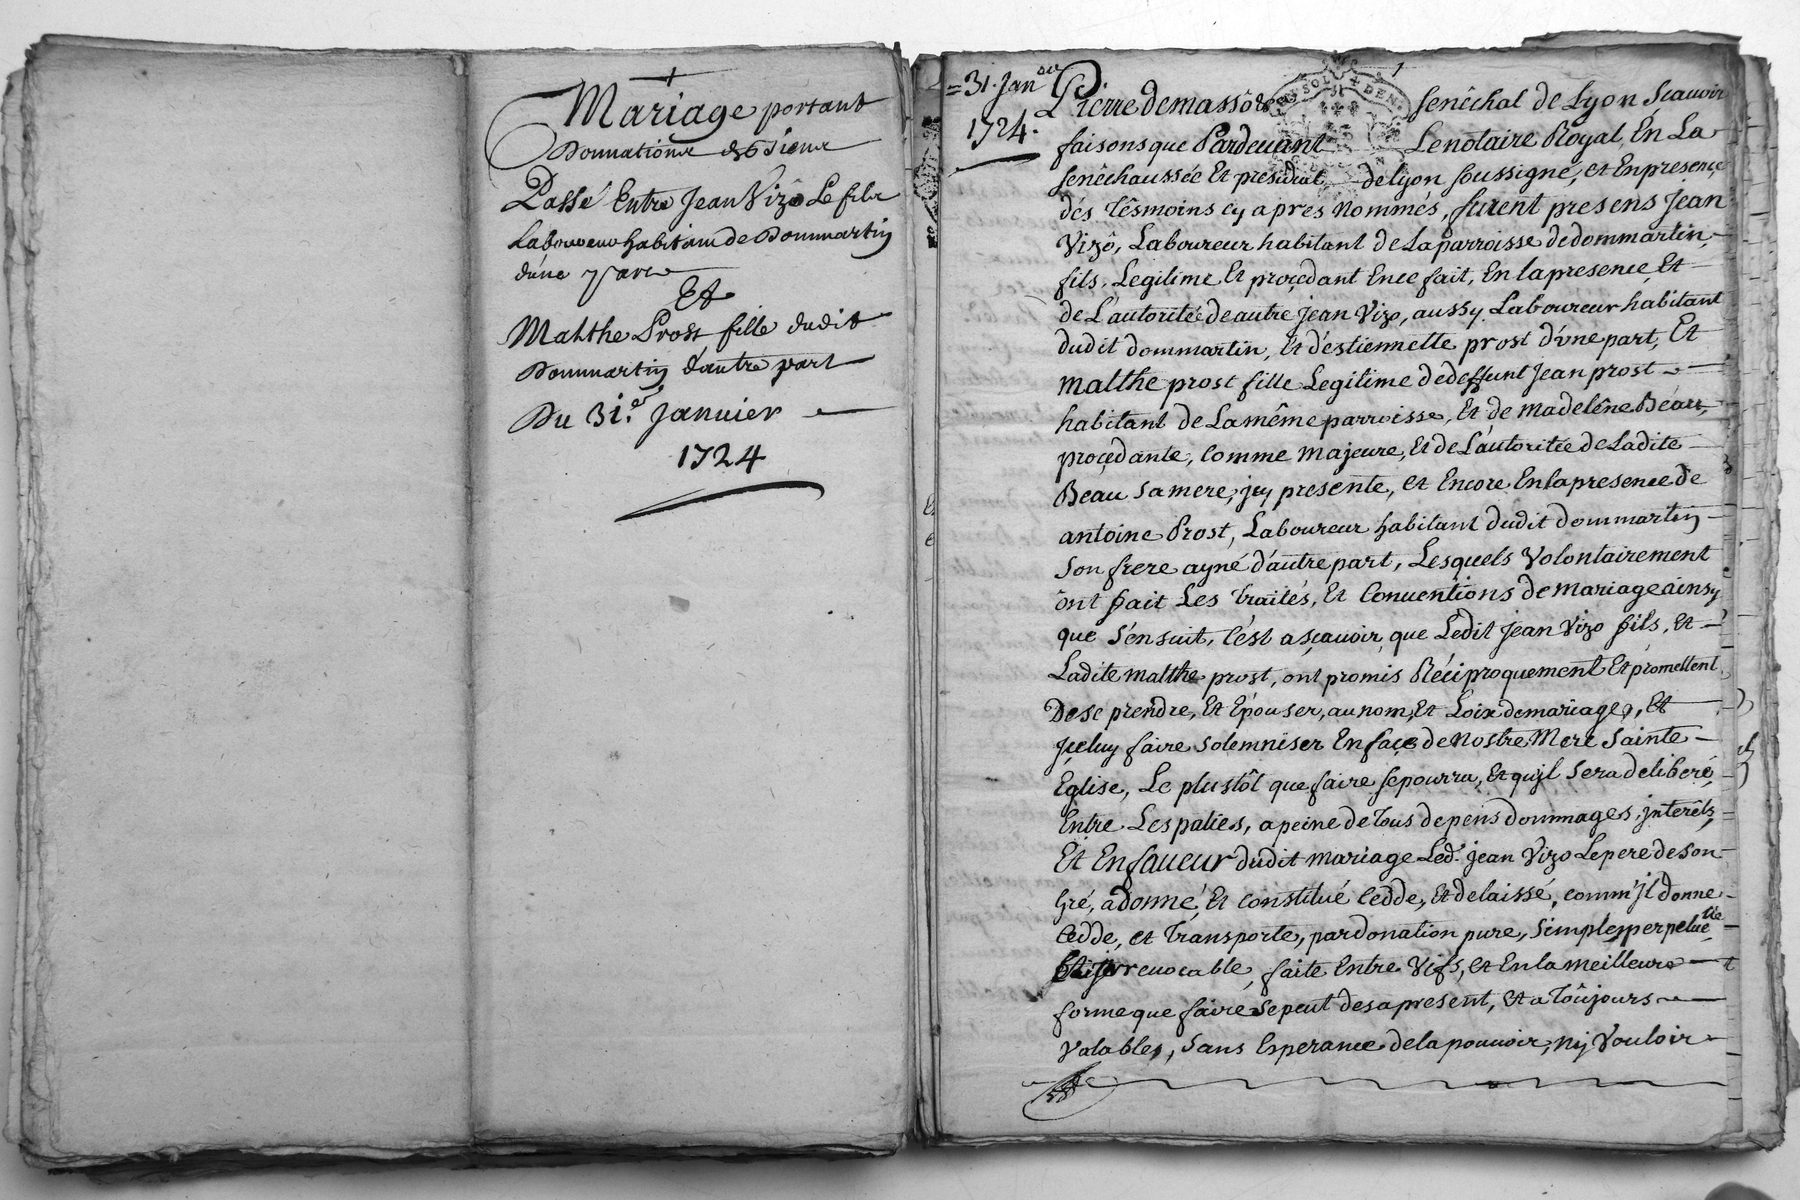 Mariage portant
Donnation
Passé Entre Jean Vizo Le fils
Laboureur habitant de Dommartin
d'une part
Et
Malthe Prost fille dudit
Dommartin d'autre part
Du 31.e Janvier
1724
=31. Jan
1724.
Pierre demasso Senéchal de Lyon Scauoir
faisons que Pardeuant Le notaire Royal, En La
senéchaussée Et présidial de lyon soussigné, et En presence
dés Tésmoins cy aprés Nommés, furent presens Jean
Vizô, Laboureur habitant de La parroisse de dommartin,
fils, Legitime Et procedant En ce fait, En la presence Et
de L'autorité de autre jean Vizo, aussy Laboureur habitant
dudit dommartin, Et d'estiennette prost d'vne part, Et
malthe prost fille Legitime de deffunt jean prost
habitant de La même parroisse, Et de Madeléne Béau,
procedante, Comme majeure, Et de L'autoritée de Ladite
Béau Sa mere, jcy presente, et Encore En la presence de
antoine Prost, Laboureur habitant dudit dommartin
Son frere ayné d'autre part, Lesquels Volontairement
ont fait Les Traités, Et Conuentions de mariage ainsy
que s'ensuit, C'ést a sçauoir, que Ledit jean Vizo fils, Et
Ladite malthe prost, ont promis Réciproquement Et promettent
De se prendre, Et Epouser, au nom, Et Loix de mariage, Et
jceluy faire Solemniser En face de Nostre Mere Sainte
Eglise, Le plustôt que faire se pourra, Et qu'jl Sera deliberé,
Entre Les paties, a peine de Tous depens dommages, jnteréts,
Et En faueur dudit mariage Led. jean Vizo Le pere de son
Gré, a donné, Et Constitué Cedde, Et delaissé, comm'jl donne
Cedde, et Transporte, par donation pure, Simple, perpetuelle
Et jrreuocable, faite Entre Vifs, et En la meilleure
forme que faire se peut des a present, Et a Toûjours
Valable, Sans Esperance de la pouuoir, ny Vouloir